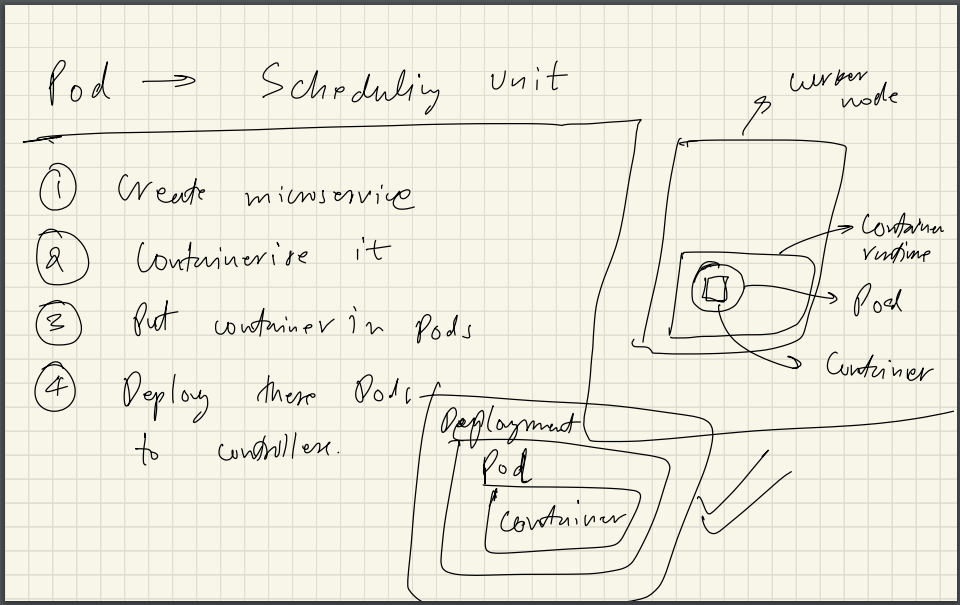 Pod → Scheduling unit
① Create microservice
② Containerise it
③ Put container in Pods
④ Deploy these Pods
to controllers.
worker
node
Container
runtime
Pod
Container
Deployment
Pod
Container